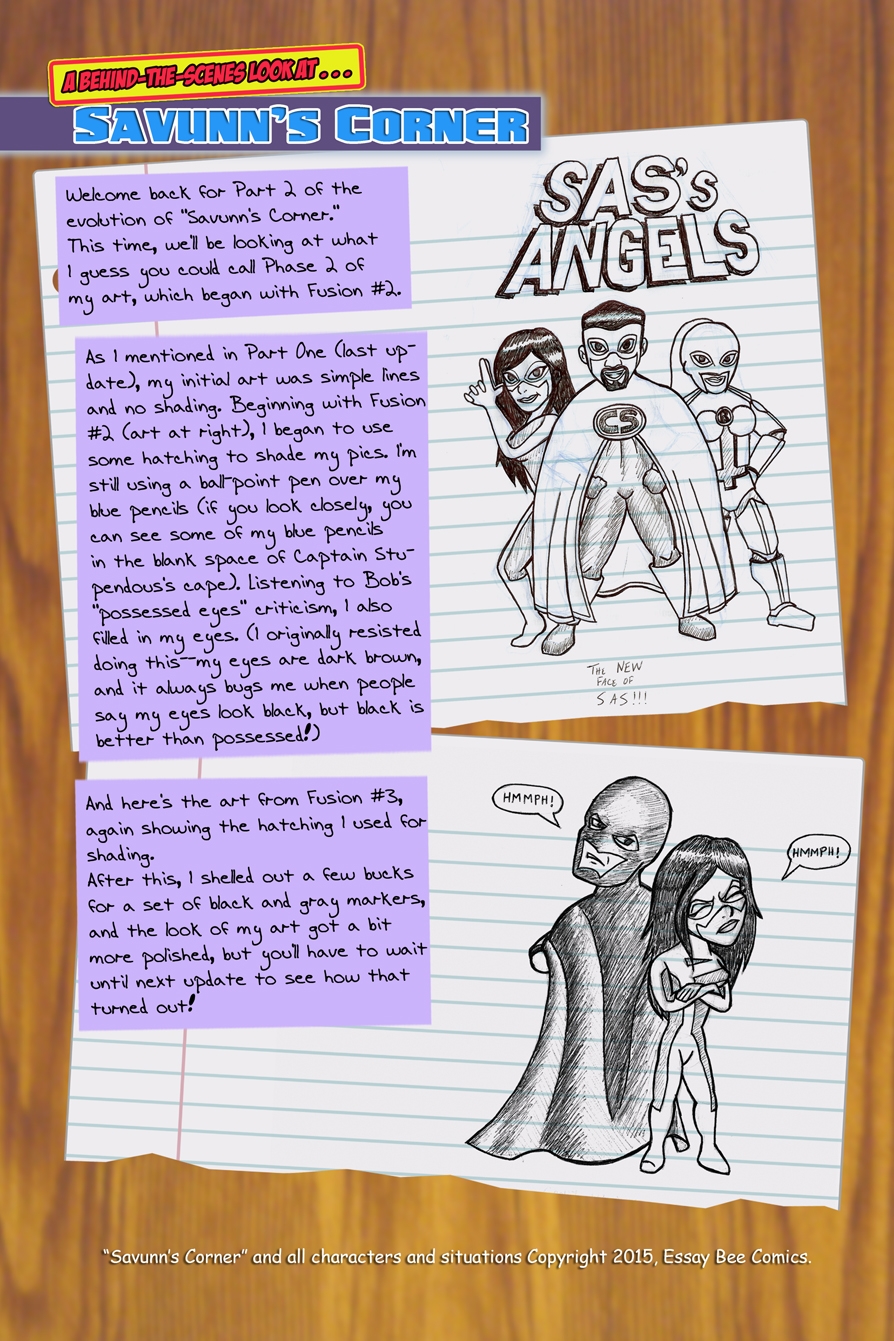 A BEHIND-THE-SCENES LOOK AT...
SAVUNN'S CORNER
Welcome back for Part 2 of the
evolution of "Savunn's Corner."
This time, we'll be looking at what
I guess you could call Phase 2 of
my art, which began with Fusion #2.
As I mentioned in Part One (last up-
date), my initial art was simple lines
and no shading. Beginning with Fusion
#2 (art at right), I began to use
some hatching to shade my pics. I'm
still using a ball-point pen over my
blue pencils (if you look closely, you
can see some of my blue pencils
in the blank space of Captain Stu-
pendous's cape). Listening to Bob's
"possessed eyes" criticism, I also
filled in my eyes. (I originally resisted
doing this--my eyes are dark brown,
and it always bugs me when people
say my eyes look black, but black is
better than possessed!)
SAS's
ANGELS
CS
THE NEW
FACE OF
SAS!!!
And here's the art from Fusion #3,
again showing the hatching I used for
shading.
After this, I shelled out a few bucks
for a set of black and gray markers,
and the look of my art got a bit
more polished, but you'll have to wait
until next update to see how that
turned out!
HMMPH!
HMMPH!
"Savunn's Corner" and all characters and situations Copyright 2015, Essay Bee Comics.